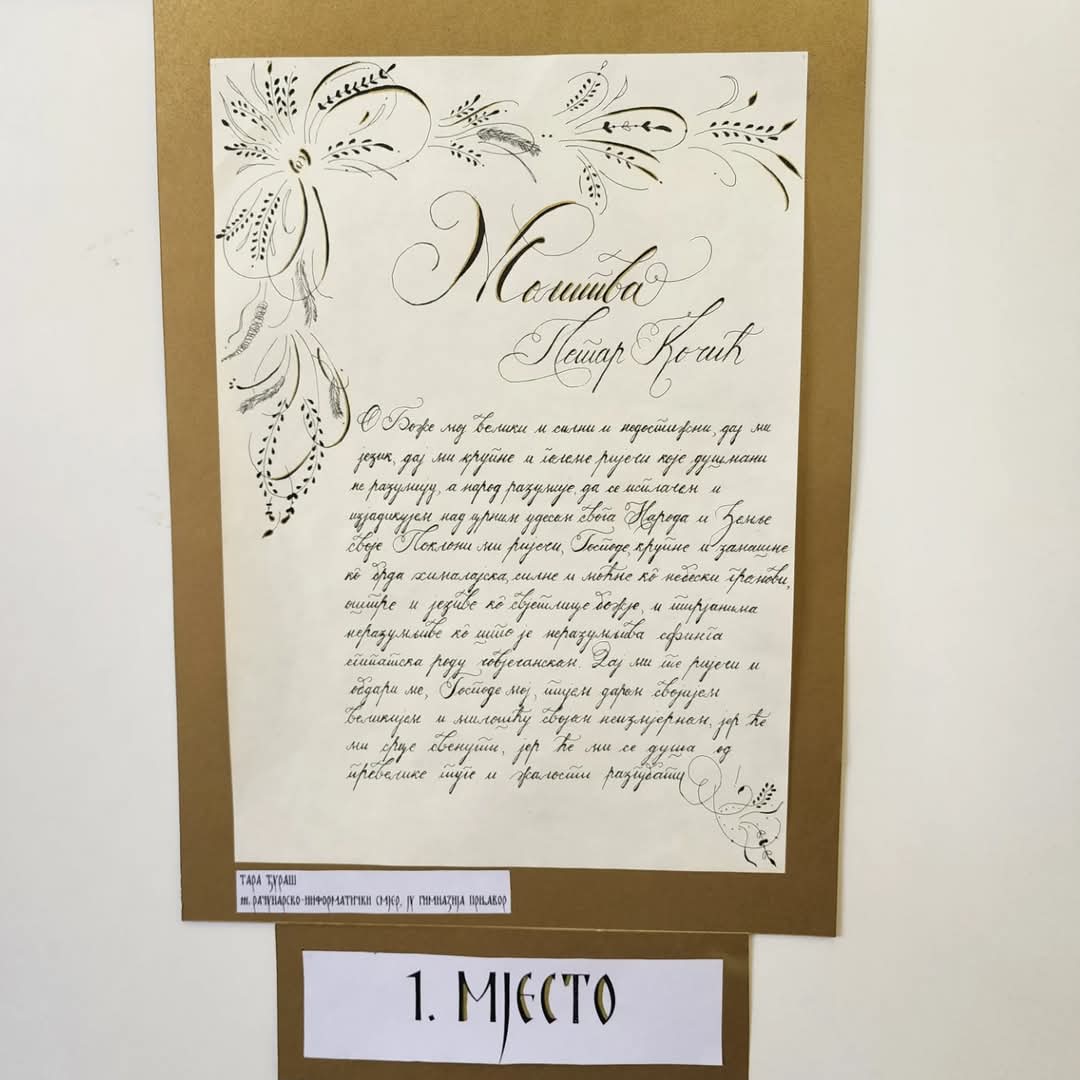 Молитва
Петар Кочић
О Боже мој велики и силни и недостижни, дај ми
језик, дај ми крупне и големе ријечи које душмани
не разумију, а народ разумије, да се исплачем и
изјадикујем над црним удесом свога Народа и Земље
своје Поклони ми ријечи, Господе, крупне и замашне
кô брда хималајска, силне и моћне кô небески громови,
оштре и језиве кô свјетлице божје, и тирјанима
неразумљиве кô што је неразумљива сфинга
египатска роду човјечанском. Дај ми те ријечи и
обдари ме, Господе мој, тијем даром својијем
великијем и милошћу својом неизмјерном, јер ће
ми срце свенути, јер ће ми се душа од
превелике туге и жалости разгубати
ТАРА ЂУРАШ
m. РАЧУНАРСКО-ИНФОРМАТИЧКИ СМЈЕР, ЈУ ГИМНАЗИЈА ПРЊАВОР
1. МЈЕСТО